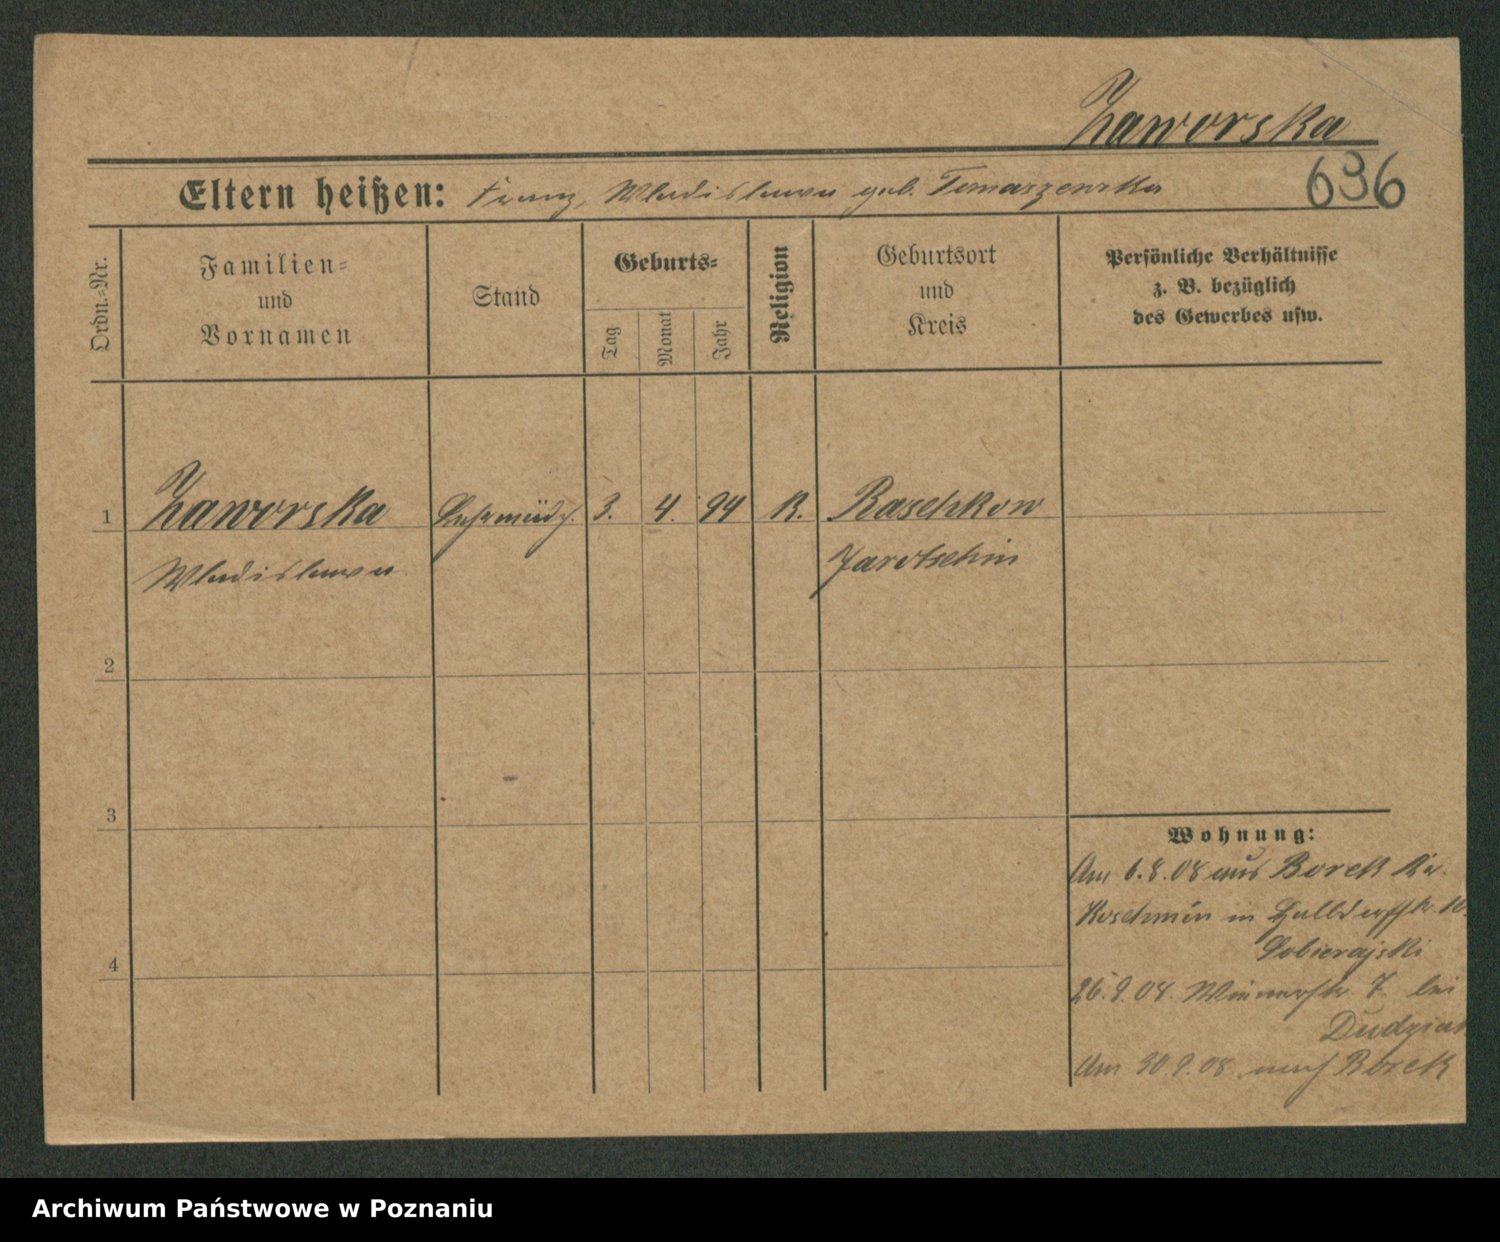 Zaworska
636
Eltern heißen: Franz, Wladislawa geb. Tomaszewska
Ordn.-Nr.
Familien-
und
Vornamen
Stand
Geburts-
Tag
Monat
Jahr
Religion
Geburtsort
und
Kreis
Persönliche Verhältnisse
z. B. bezüglich
des Gewerbes usw.
1 Zaworska Lehrmädch. 3. 4. 94 K. Raschkow
Wladislawa Jarotschin
2
3
4
Wohnung:
Am 6.8.08 aus Borek Kr.
Koschmin in 10.
Sobierajski
26.9.08. 7. bei
Am 30.9.08. nach Borek
Archiwum Państwowe w Poznaniu